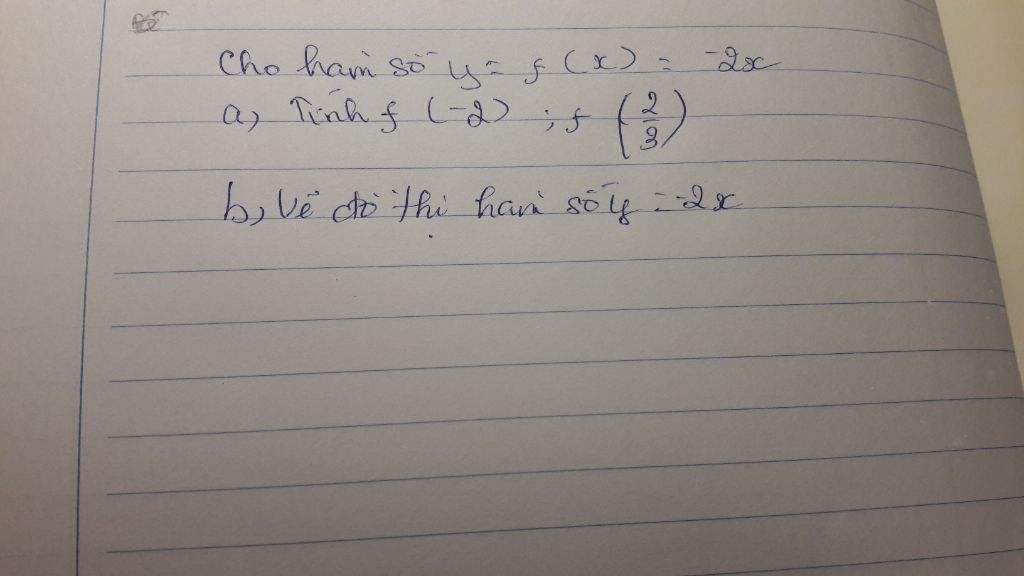 Cho hàm số y = f(x) = -2x
a, Tính f(-2) ; f(2/3)
b, Vẽ đồ thị hàm số y = -2x